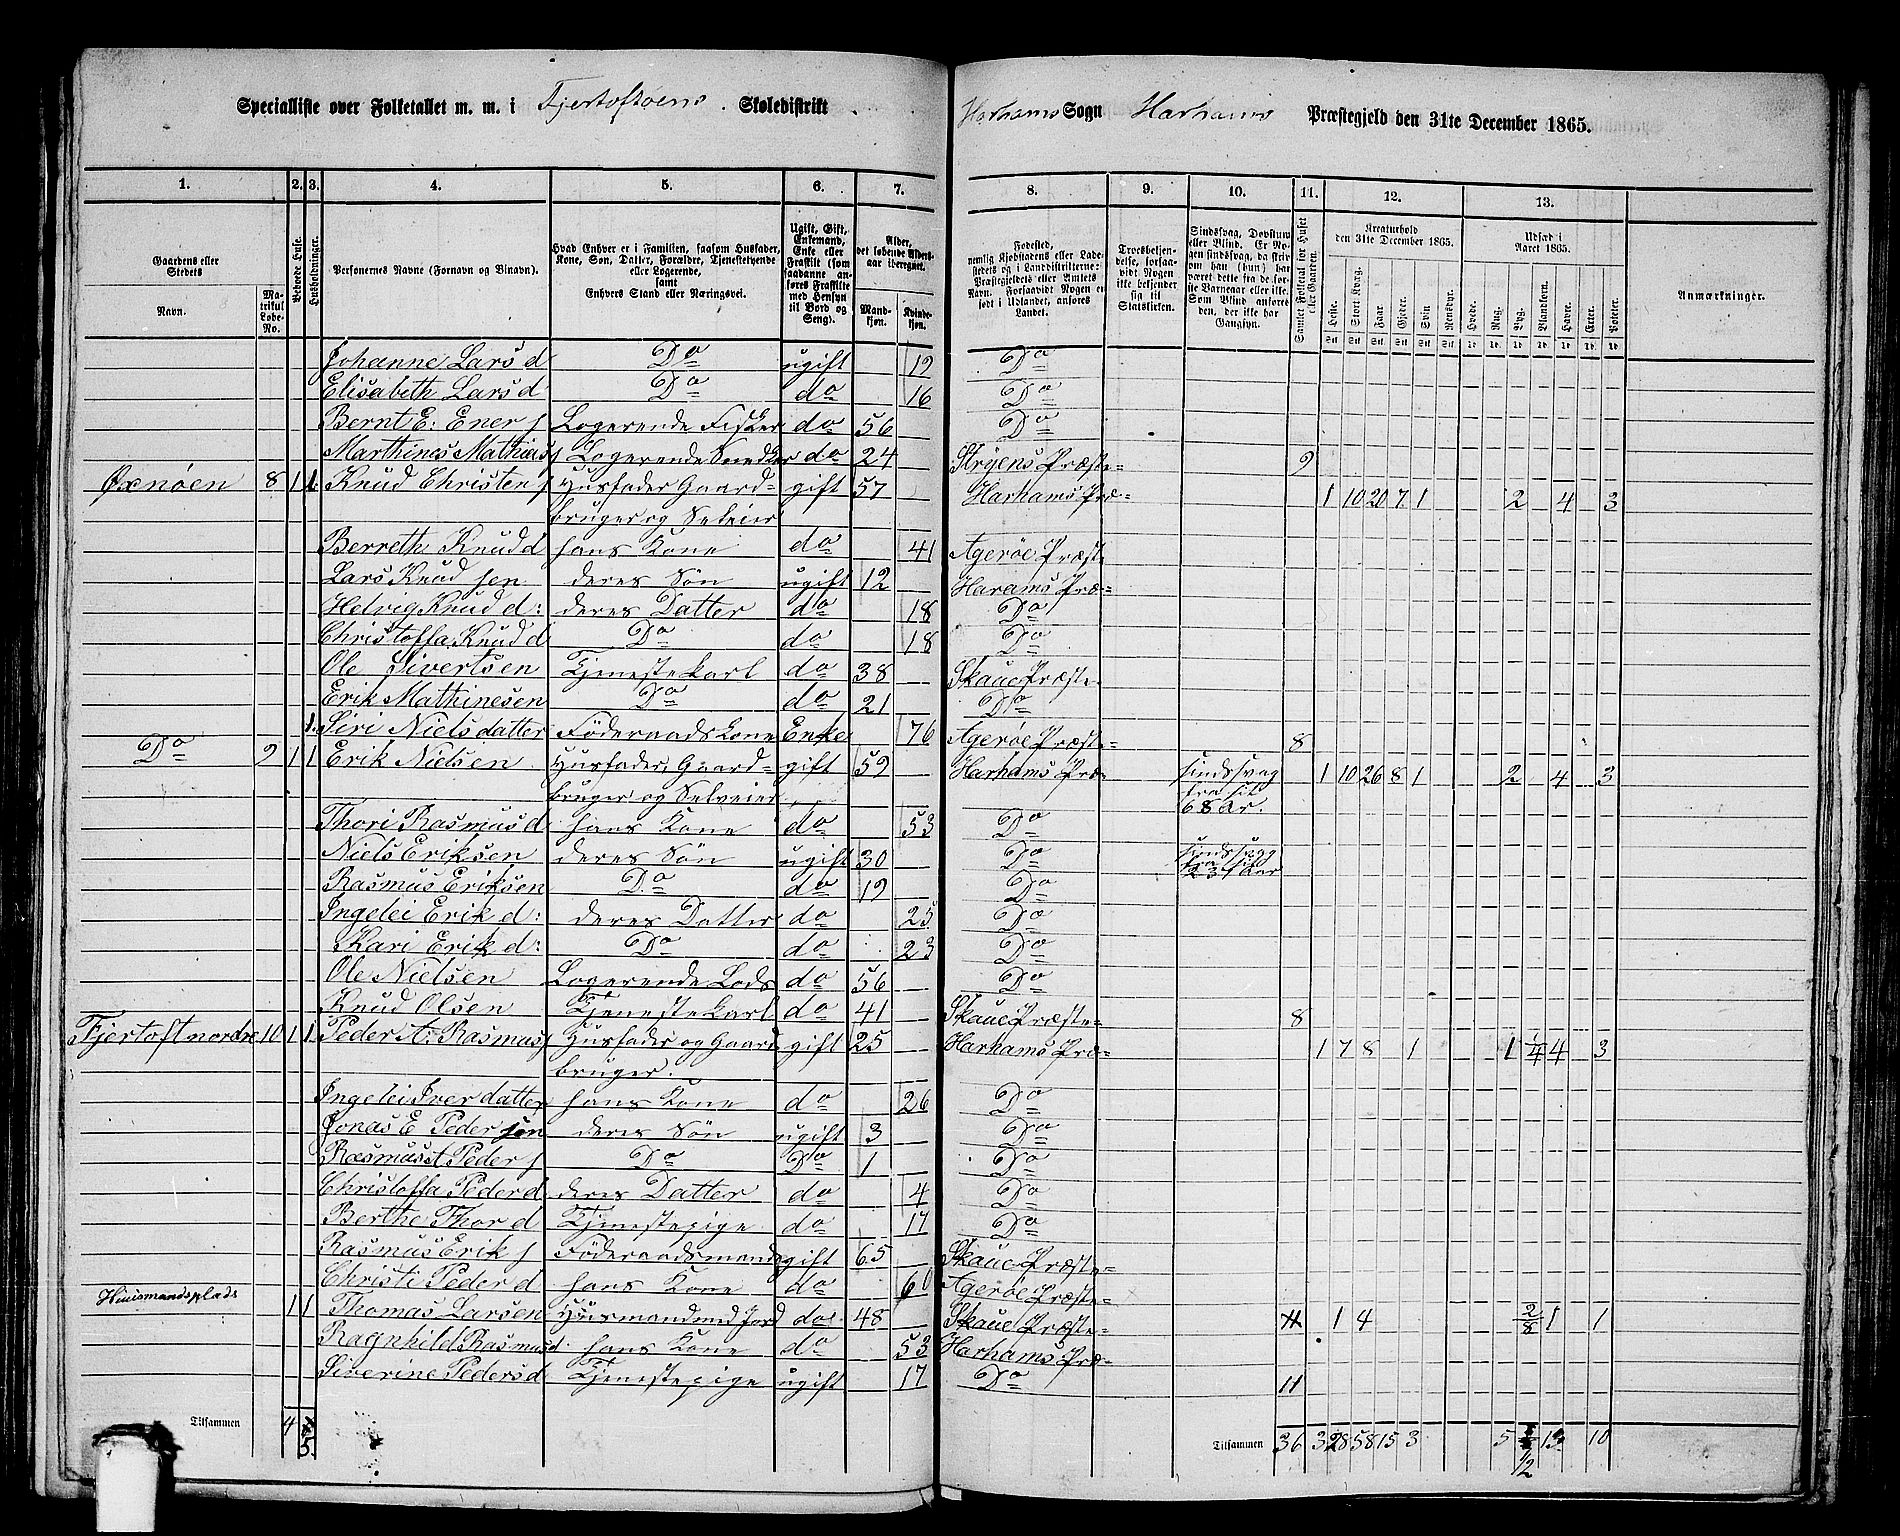 Specialliste over Folketallet m. m. i Fjertoftøens Skoledistrikt
Harhams Sogn Harhams Præstegjeld den 31te December 1865.
1. 2. 3. 4. 5. 6. 7. 8. 9. 10. 11. 12. 13.
Gaardens eller Stedets
Navn.
Matrikul Løbe-No.
Beboede Huse.
Husholdninger.
Personernes Navne (Fornavn og Binavn).
Hvad Enhver er i Familien, saasom Husfader, Kone, Søn, Datter, Forældre, Tjenestetyende eller Logerende, samt Enhvers Stand eller Næringsvei.
Ugift, Gift, Enkemand, Enke eller Fraskilt (som saadanne anføres Fraskilte med Hensyn til Bord og Seng).
Alder, det løbende Aldersaar iberegnet.
Mandkjøn.
Kvindekjøn.
Fødested, nemlig Kjøbstadens eller Ladestedets og i Landdistrikterne: Præstegjeldets eller Amtets Navn. Forsaavidt Nogen er født i Udlandet, anføres Landet.
Troesbekjendelse, forsaavidt Nogen ikke bekjender sig til Statskirken.
Sindssvag, Døvstum eller Blind. Er Nogen sindssvag, da skriv om han (hun) har været dette fra de første Barneaar eller ikke. Som Blind anføres den, der ikke har Gangsyn.
Samlet Folketal for Huset eller Gaarden.
Kreaturhold den 31te December 1865.
Heste. Stort Kvæg. Faar. Gjeter. Svin. Rensdyr.
Udsæd i Aaret 1865.
Hvede. Rug. Byg. Blandkorn. Havre. Erter. Poteter.
Anmærkninger.
Johanne Lars d Do ugift 19 Do
Elisabeth Lars d Do do 16 Do
Bernt E: Ener s Logerende Fisker do 56 Do
Marthines Mathias s Logerende Snedker do 24 Stryens Præste= 9
Øxnøen 8 1 1 Knud Christen s Husfader Gaard= gift 57 Harhams Præ= 1 10 20 7 1 2 4 3
bruger og Selveier
Berreth Knud d hans Kone do 41 Agerøe Præste
Lars Knud sen deres Søn ugift 12 Harams Præ=
Helvig Knud d: deres Datter do 18 Do
Christoffa Knud d Do do 18 Do
Ole Sivertsen Tjenestekarl do 38 Skaue Præste=
Erik Mathinesen Do do 21 Do
1 Siri Nielsdatter Föderaadskone Enke 76 Agerøe Præste= 8
Do 9 1 1 Erik Nielsen Husfader, Gaard= gift 59 Harhams Præ= sindssvag 1 10 26 8 1 2 4 3
bruger og Selveier fra sit 68 Aar.
Thori Rasmus d hans Kone do 53 Do
Niels Eriksen deres Søn ugift 30 Do sindssvag fra sit 23 Aar
Rasmus Eriksen Do do 19 Do
Ingelei Erik d: deres Datter do 25 Do
Kari Erik d: Do do 23 Do
Ole Nielsen Logerende Lods do 56 Do
Knud Olsen Tjenestekarl do 41 Skaue Præste= 8
Fjertoft nordre 10 1 1 Peder A: Rasmus s Husfader og Gaard gift 25 Harhams Præ= 1 7 8 1 1 1/4 4 3
bruger.
Ingelei Iverdatter hans Kone do 26 Do
Jonas E Pedersen deres Søn ugift 3 Do
Rasmus A Peder s Do Do 1 Do
Christoffa Peder d deres Datter do 4 Do
Berthe Thor d Tjenestepige do 17 Do
Rasmus Erik s Föderaadsmand gift 65 Skaue Præste=
Christi Peder d hans Kone do 60 Agerøe Præste=
Huusmandsplads 1 1 Thomas Larsen Husmand med Jord do 48 Skaue Præste= 11 1 4 2/8 1 1
Ragnhild Rasmusd. hans Kone do 53 Harhams Præ=
Siverine Peders d Tjenestepige ugift 17 Do 11
Tilsammen 4 5.
Tilsammen 36 3 28 58 15 3 5 1/2 13 10